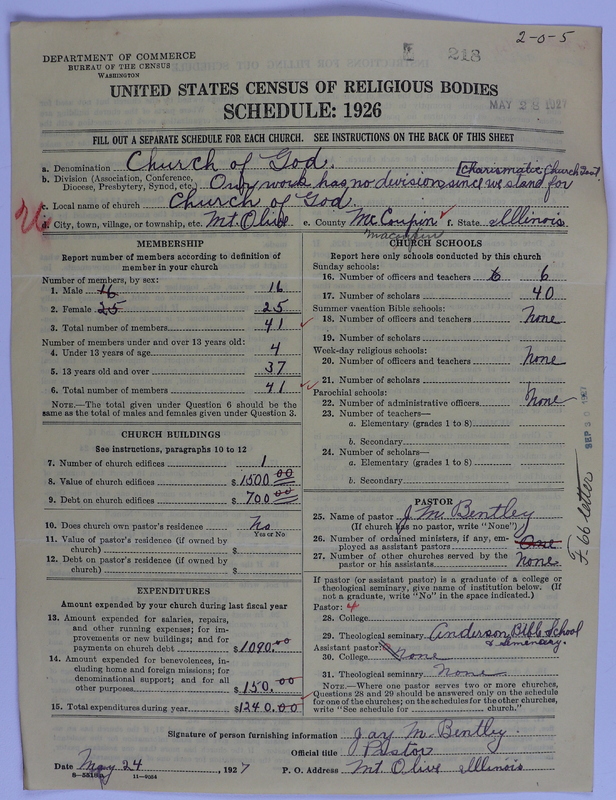 2-0-5
DEPARTMENT OF COMMERCE
BUREAU OF THE CENSUS
WASHINGTON
218
UNITED STATES CENSUS OF RELIGIOUS BODIES
MAY 28 1927
SCHEDULE: 1926
FILL OUT A SEPARATE SCHEDULE FOR EACH CHURCH. SEE INSTRUCTIONS ON THE BACK OF THIS SHEET
a. Denomination Church of God.
b. Division (Association, Conference, Diocese, Presbytery, Synod, etc.) Our work has no divisions since we stand for [Charismatic Church
c. Local name of church Church of God.
d. City, town, village, or township, etc. Mt. Olive e. County McCoupin f. State Illinois
Macoupin
MEMBERSHIP
Report number of members according to definition of member in your church
Number of members, by sex:
1. Male 16 16
2. Female 25 25
3. Total number of members 41
Number of members under and over 13 years old:
4. Under 13 years of age 4
5. 13 years old and over 37
6. Total number of members 41
NOTE.—The total given under Question 6 should be the same as the total of males and females given under Question 3.
CHURCH BUILDINGS
See instructions, paragraphs 10 to 12
7. Number of church edifices 1
8. Value of church edifices $1500.00
9. Debt on church edifices $700.00
10. Does church own pastor's residence No
Yes or No
11. Value of pastor's residence (if owned by church) $
12. Debt on pastor's residence (if owned by church) $
EXPENDITURES
Amount expended by your church during last fiscal year
13. Amount expended for salaries, repairs, and other running expenses; for improvements or new buildings; and for payments on church debt $1090.00
14. Amount expended for benevolences, including home and foreign missions; for denominational support; and for all other purposes $150.00
15. Total expenditures during year $1240.00
CHURCH SCHOOLS
Report here only schools conducted by this church
Sunday schools:
16. Number of officers and teachers 6 6
17. Number of scholars 40
Summer vacation Bible schools:
18. Number of officers and teachers None
19. Number of scholars
Week-day religious schools:
20. Number of officers and teachers None
21. Number of scholars
Parochial schools:
22. Number of administrative officers None
23. Number of teachers—
a. Elementary (grades 1 to 8)
b. Secondary
24. Number of scholars—
a. Elementary (grades 1 to 8)
b. Secondary
SEP 30 1927
F 66 letter
PASTOR
25. Name of pastor J. M. Bentley
(If church has no pastor, write "None")
26. Number of ordained ministers, if any, employed as assistant pastors One
27. Number of other churches served by the pastor or his assistants None
If pastor (or assistant pastor) is a graduate of a college or theological seminary, give name of institution below. (If not a graduate, write "No" in the space indicated.)
Pastor: 4
28. College
29. Theological seminary Anderson Bible School & Seminary.
Assistant pastor:
30. College None
31. Theological seminary None
NOTE.—Where one pastor serves two or more churches, Questions 28 and 29 should be answered only on the schedule for one of the churches; on the schedules for the other churches, write "See schedule for ........ church."
Signature of person furnishing information Jay M. Bentley
Official title Pastor
Date May 24, 1927 P. O. Address Mt. Olive Illinois
11-9034